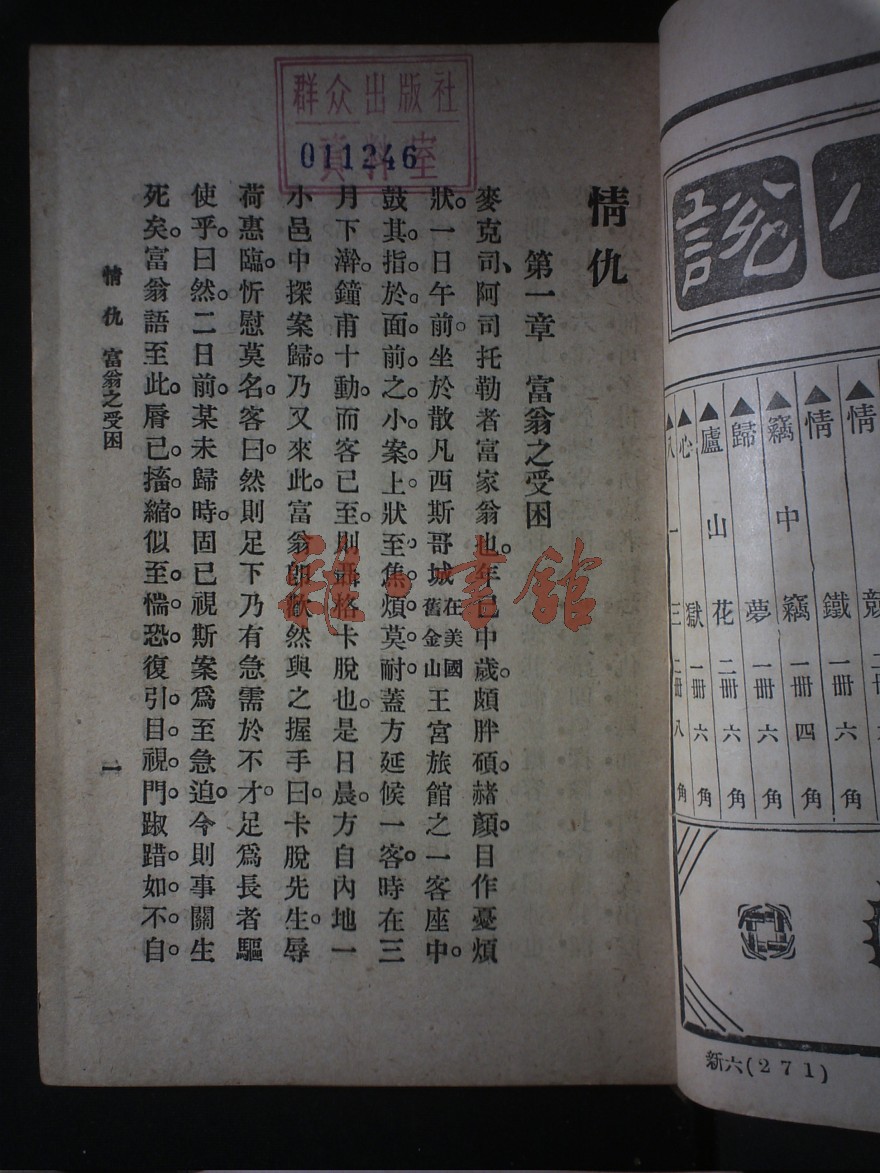 群众出版社
資料室
011246
情仇
第一章　富翁之受困
麥克司、阿司托勒者富家翁也。年已中歲。頗胖碩。赭顏。目作憂煩
狀。一日午前。坐於散凡西斯哥城在美國舊金山王宮旅館之一客座中。
鼓其指於面前之小案上。狀至焦煩莫耐。蓋方延候一客。時在三
月下澣。鐘甫十動。而客已至。則聶格卡脫也。是日晨。方自內地一
小邑中探案歸。乃又來此。富翁即歡然與之握手曰。卡脫先生。辱
荷惠臨。忻慰莫名。客曰。然則足下乃有急需於不才。足爲長者驅
使乎。曰然。二日前。某未歸時。固已視斯案爲至急迫。今則事關生
死矣。富翁語至此。脣已搐縮。似至惴恐。復引目視門。踧踖如不自
情仇　富翁之受困
一
雜·書館
說
情
情　鐵　一冊　六角
竊中竊　一冊　四角
歸夢　一冊　六角
廬山花　二冊　六角
心獄　一冊　六角
一三　二冊　八角
新六(271)